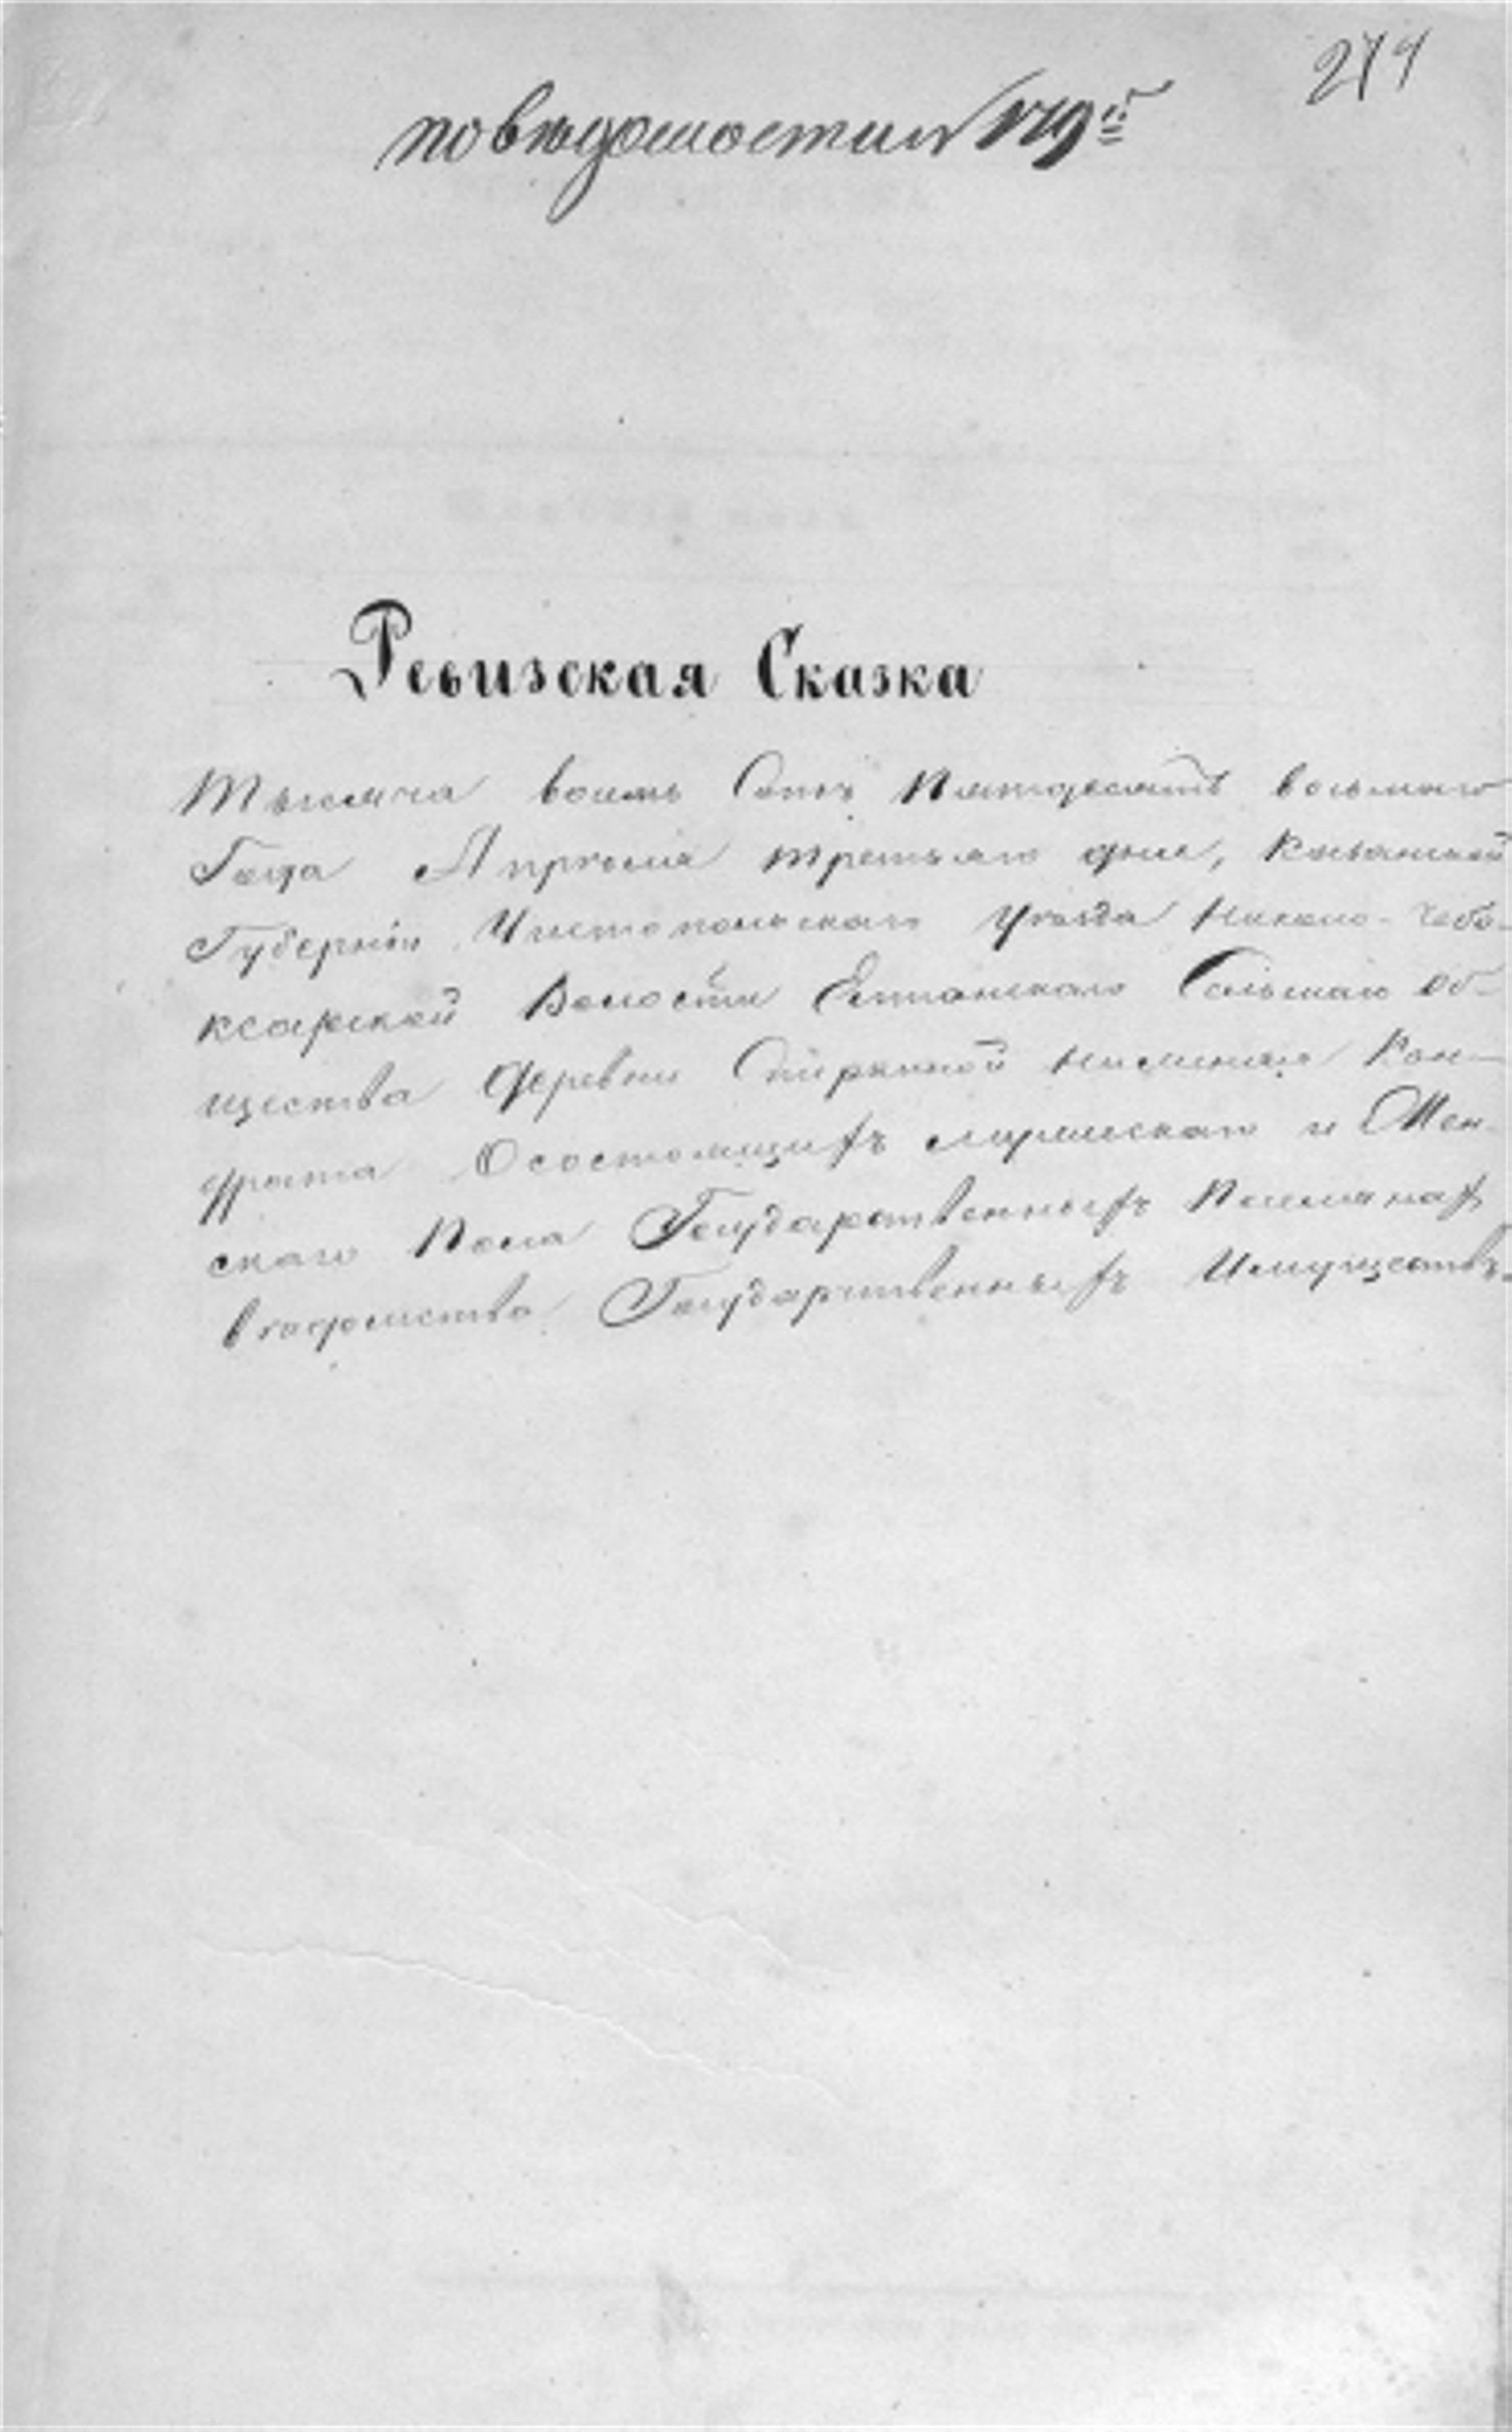 274
по ведомости № 179й
Ревизская Сказка
Тысяча восемь Сотъ Пятьдесятъ восьмаго
Года Апреля третьяго дня, Казанской
Губернiи Чистопольскаго Уѣзда Николо-Чебо-
ксарской Волости Сельскаго Об-
щества Деревни Кон-
драта О состоящихъ мужескаго и Жен-
скаго Пола Государственныхъ Поселянах
вѣдомства Государственныхъ Имуществъ.